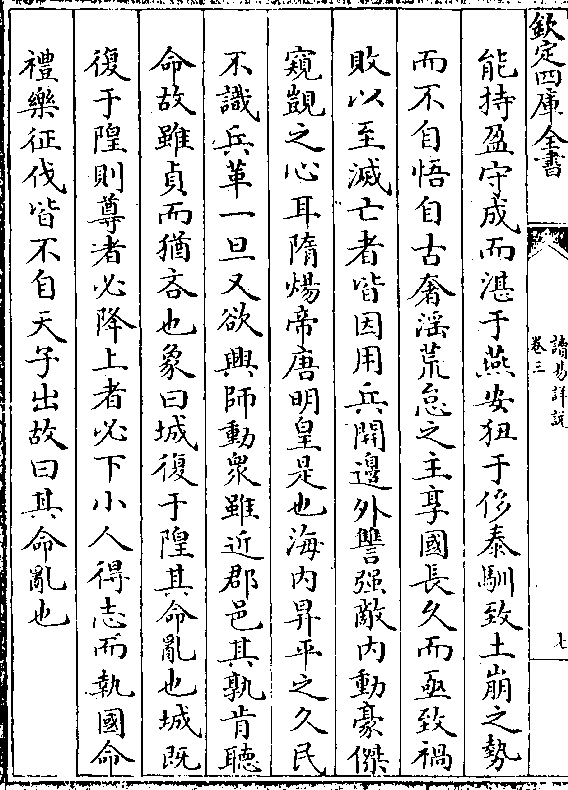 欽定四庫全書
讀易詳説
卷三
七
能持盈守成而湛于燕安狃于侈泰馴致土崩之勢
而不自悟自古奢滛荒怠之主享國長久而亟致禍
敗以至滅亡者皆因用兵開邊外讐强敵内動豪傑
窺覬之心耳隋煬帝唐明皇是也海内昇平之久民
不識兵革一旦又欲興師動衆雖近郡邑其孰肯聽
命故雖貞而猶吝也象曰城復于隍其命亂也城既
復于隍則尊者必降上者必下小人得志而執國命
禮樂征伐皆不自天子出故曰其命亂也